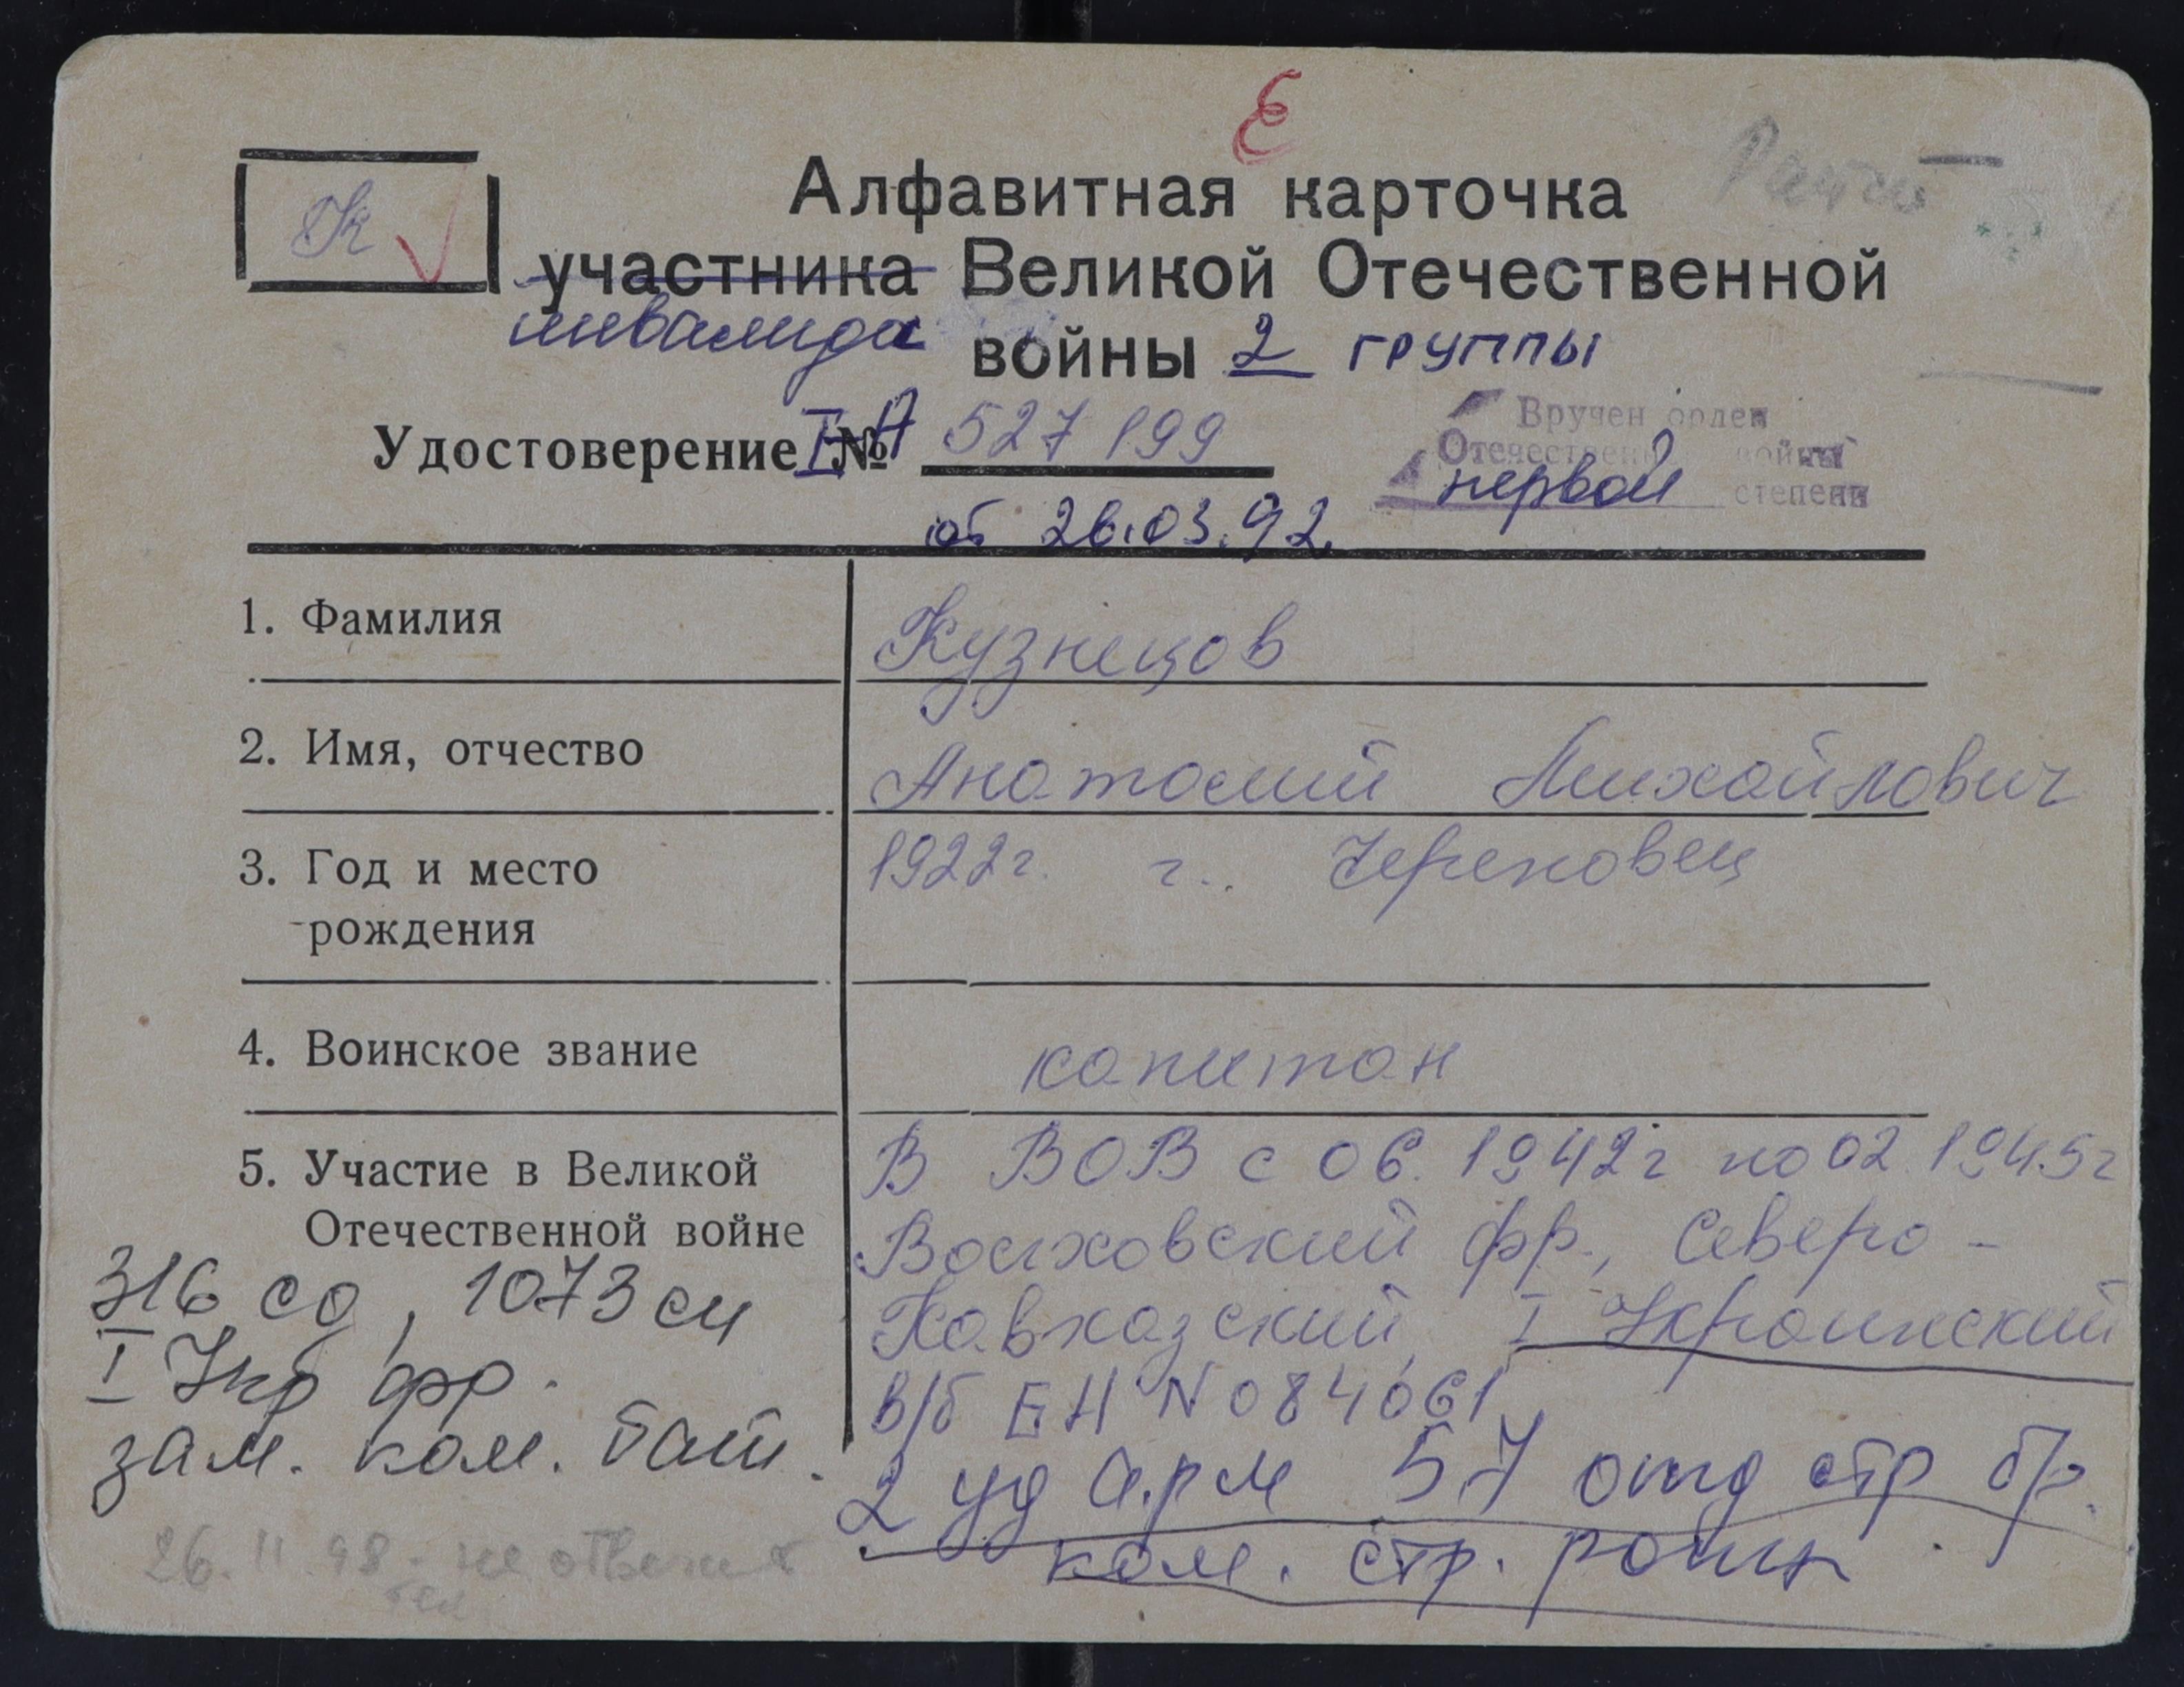 Е
Алфавитная карточка
К
участника Великой Отечественной
инвалида
войны 2 группы
Вручен орден
Отечественной войны
первой степени
Удостоверение № I-А 527199
от 26.03.92.
1. Фамилия Кузнецов
2. Имя, отчество Анатолий Михайлович
3. Год и место 1922г. г. Череповец
рождения
4. Воинское звание капитан
5. Участие в Великой В ВОВ с 06.1942г по 02.1945г
Отечественной войне Волховский фр., Северо-
316 сд, 1073 сп Кавказский, I Украинский
I Укр фр. в/б ЕН N084061
зам. ком. бат. 2 уд арм 57 отд стр бр.
ком. стр. роты
26.11.98. - не отвечает
тел